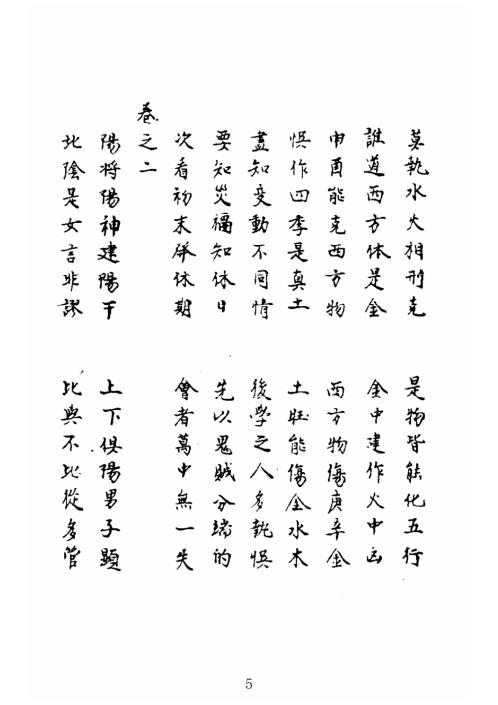 莫執水火相刑克　是物皆能化五行
誰道西方体是金　金中建作火中凶
申酉能克西方物　西方物傷庚辛金
悮作四季是真土　土旺能傷金水木
盡知変動不同情　後學之人多執悞
要知災福知休日　先以鬼贼分端的
次看初末併休期　會者萬中無一失
卷之二
陽将陽神建陽干　上下俱陽男子顯
比陰是女言非謬　比與不比從多管
5